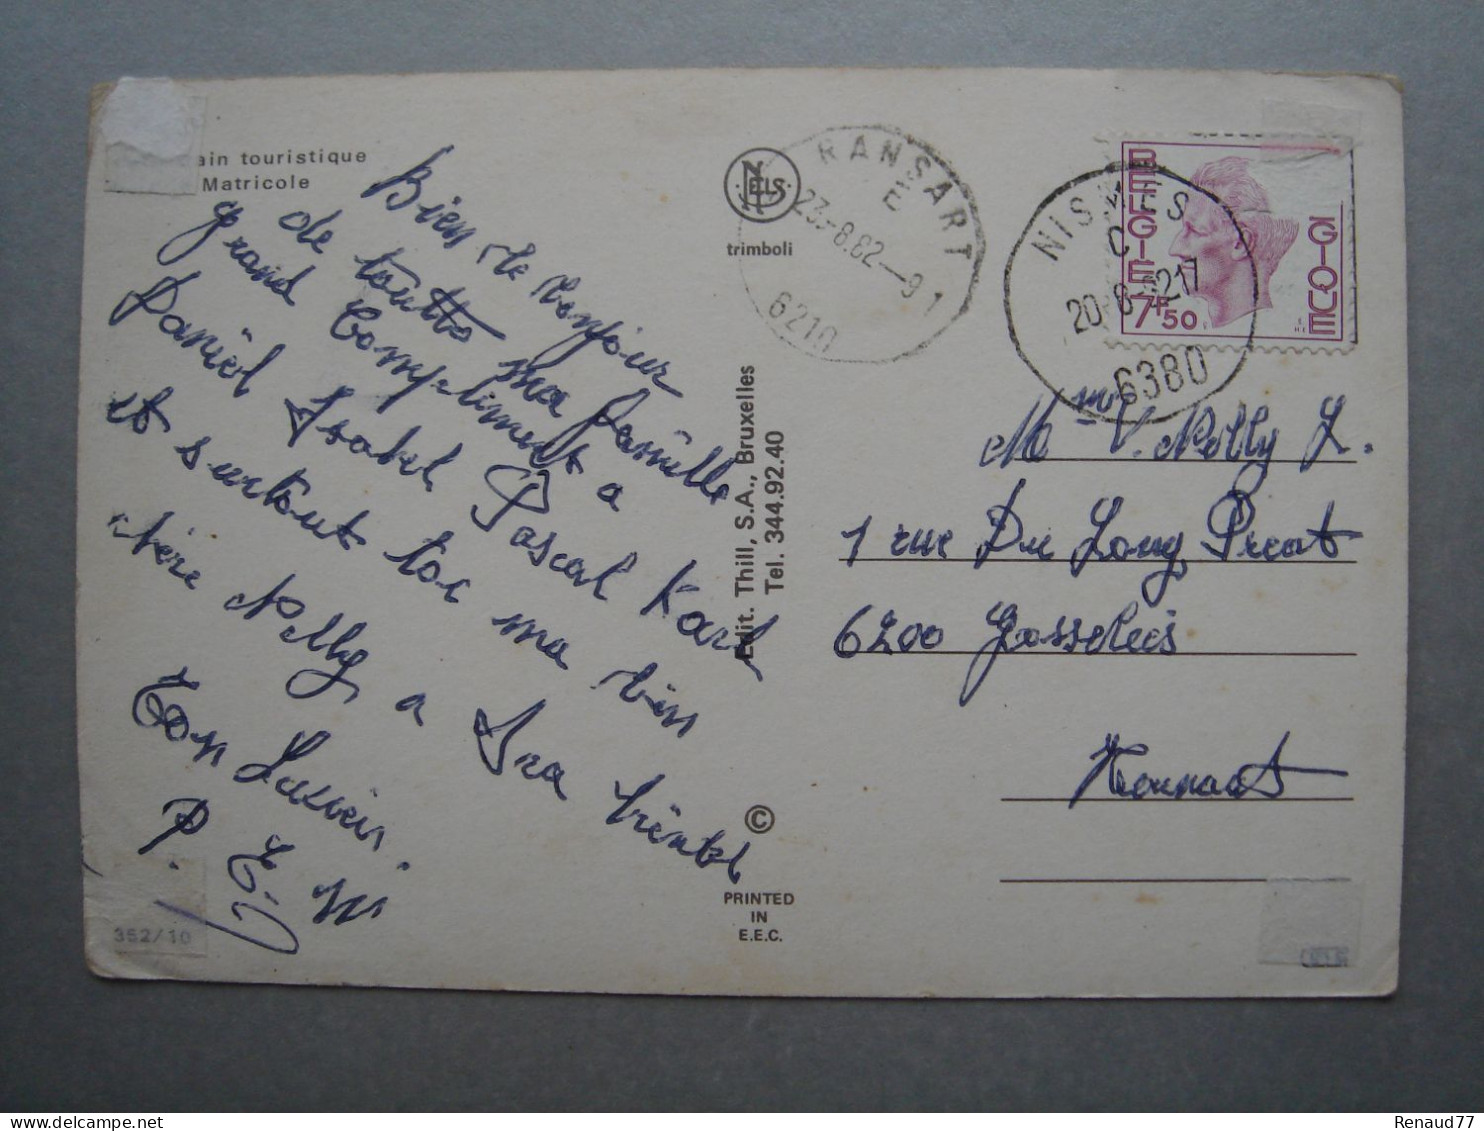 ain touristique
Matricole
Bien le bonjour
de toutte ma famille
grand Compliment a
Daniel Isabel Pascal Karl
et surtout toi ma bien
chère Nelly a
Ton Lucien.
P.
352/10
NELS
trimboli
Edit. Thill, S.A., Bruxelles
Tel. 344.92.40
©
PRINTED
IN
E.E.C.
RANSART
E
23-8.82-91
6210
NISMES
C
20-8- 217
6380
BELGIE
BELGIQUE
7F50
Mme V. Nelly L.
1 rue Du Long Preat
6200 Gosselies
Renaud77